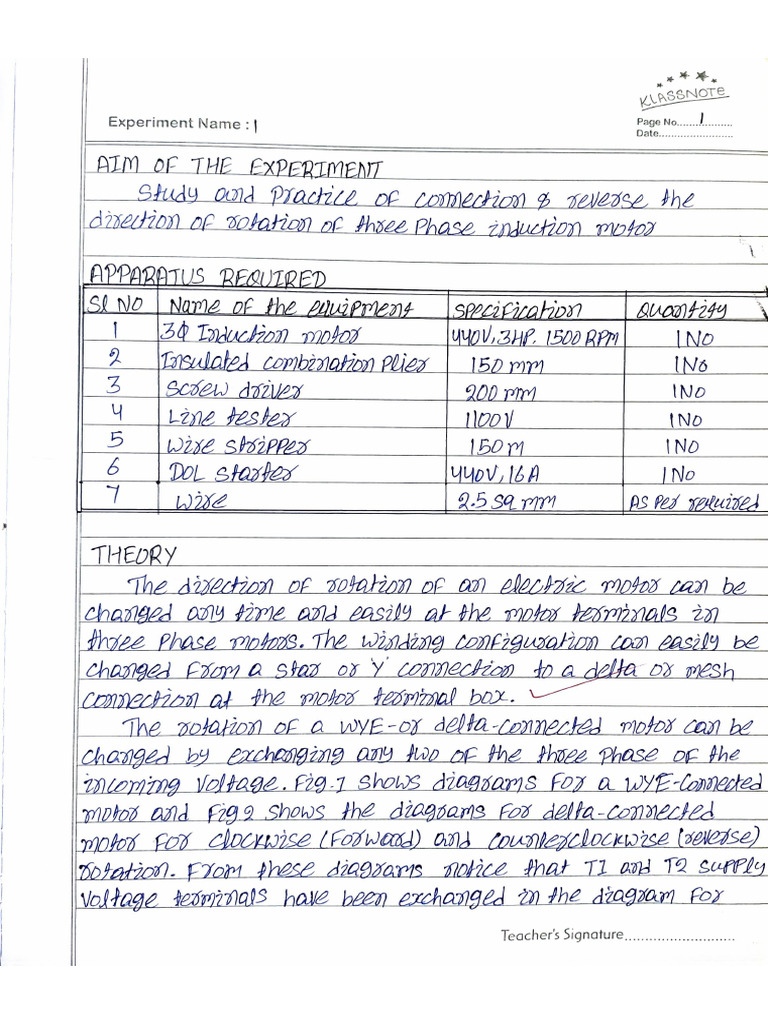 KLASSNOTE
Experiment Name : 1
Page No. 1
Date
AIM OF THE EXPERIMENT
Study and Practice of connection & reverse the
direction of rotation of three Phase induction motor
APPARATUS REQUIRED
Sl NO Name of the equipment Specification Quantity
1 3Φ Induction motor 440V, 3HP. 1500 RPM 1 NO
2 Insulated combination Plier 150 mm 1 NO
3 Screw driver 200 mm 1 NO
4 Line tester 1100V 1 NO
5 Wire stripper 150 m 1 NO
6 DOL Starter 440V, 16A 1 NO
7 Wire 2.5 sq mm As Per required
THEORY
The direction of rotation of an electric motor can be
changed any time and easily at the motor terminals in
three Phase motors. The winding configuration can easily be
changed From a star or 'Y' connection to a delta or mesh
connection at the motor terminal box.
The rotation of a WYE-or delta-connected motor can be
changed by exchanging any two of the three phase of the
incoming Voltage. Fig.1 shows diagrams For a WYE-Connected
motor and Fig 2 shows the diagrams For delta-connected
motor For clockwise (Forward) and counterclockwise (reverse)
rotation. From these diagrams notice that T1 and T2 supply
Voltage terminals have been exchanged in the diagram For
Teacher's Signature